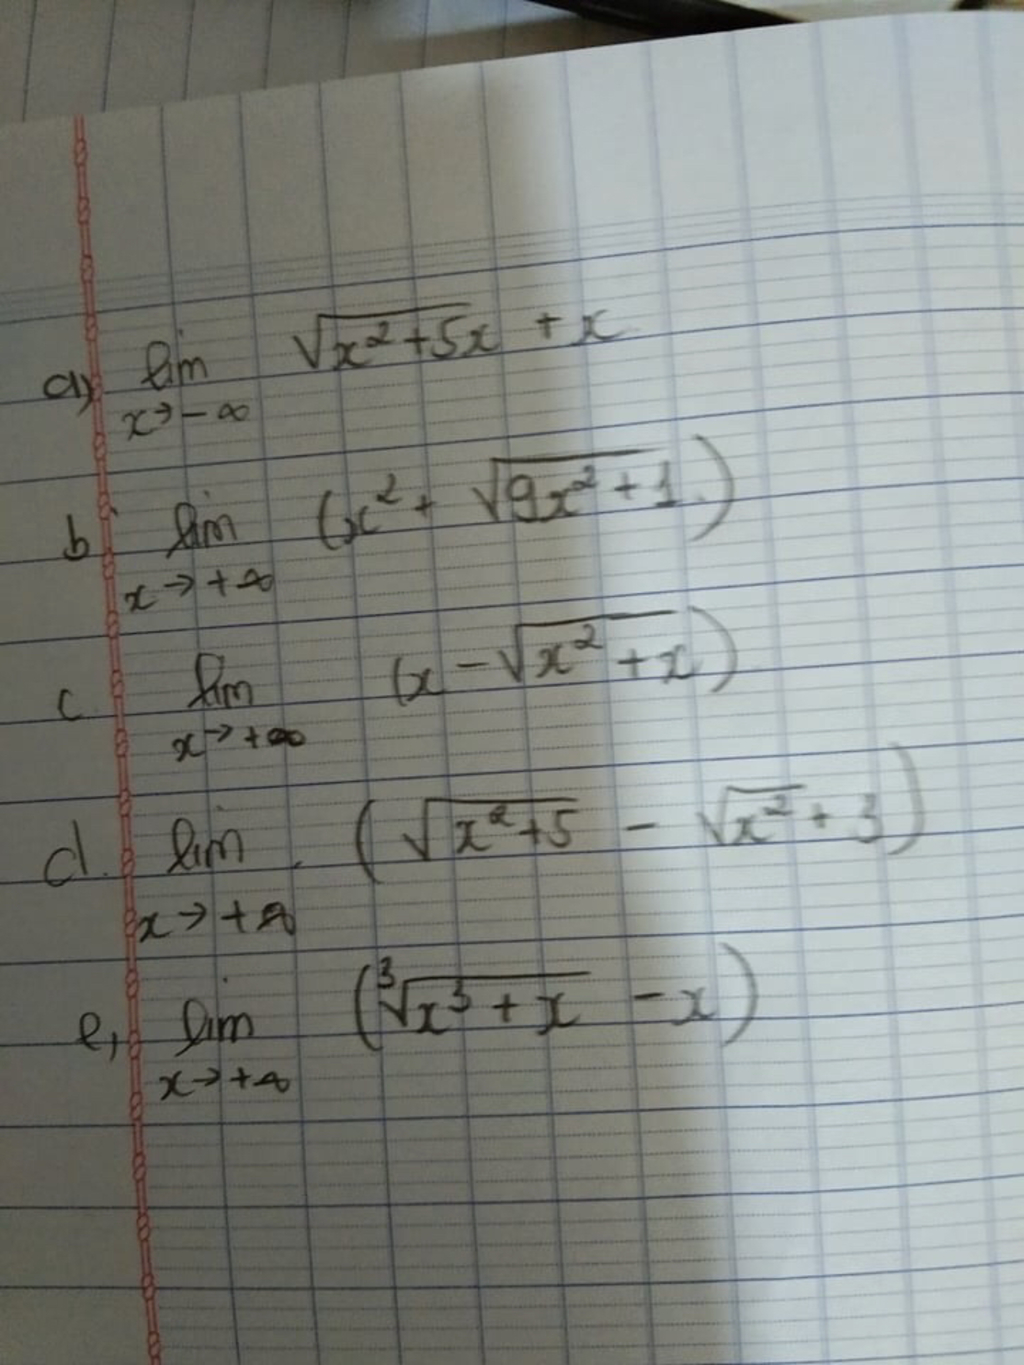 a) lim √(x²+5x) + x
x→-∞
b lim (x² + √(9x²+1))
x→+∞
c lim (x - √(x²+x))
x→+∞
d. lim (√(x²+5) - √x²+3)
x→+∞
e, lim (³√(x³+x) - x)
x→+∞